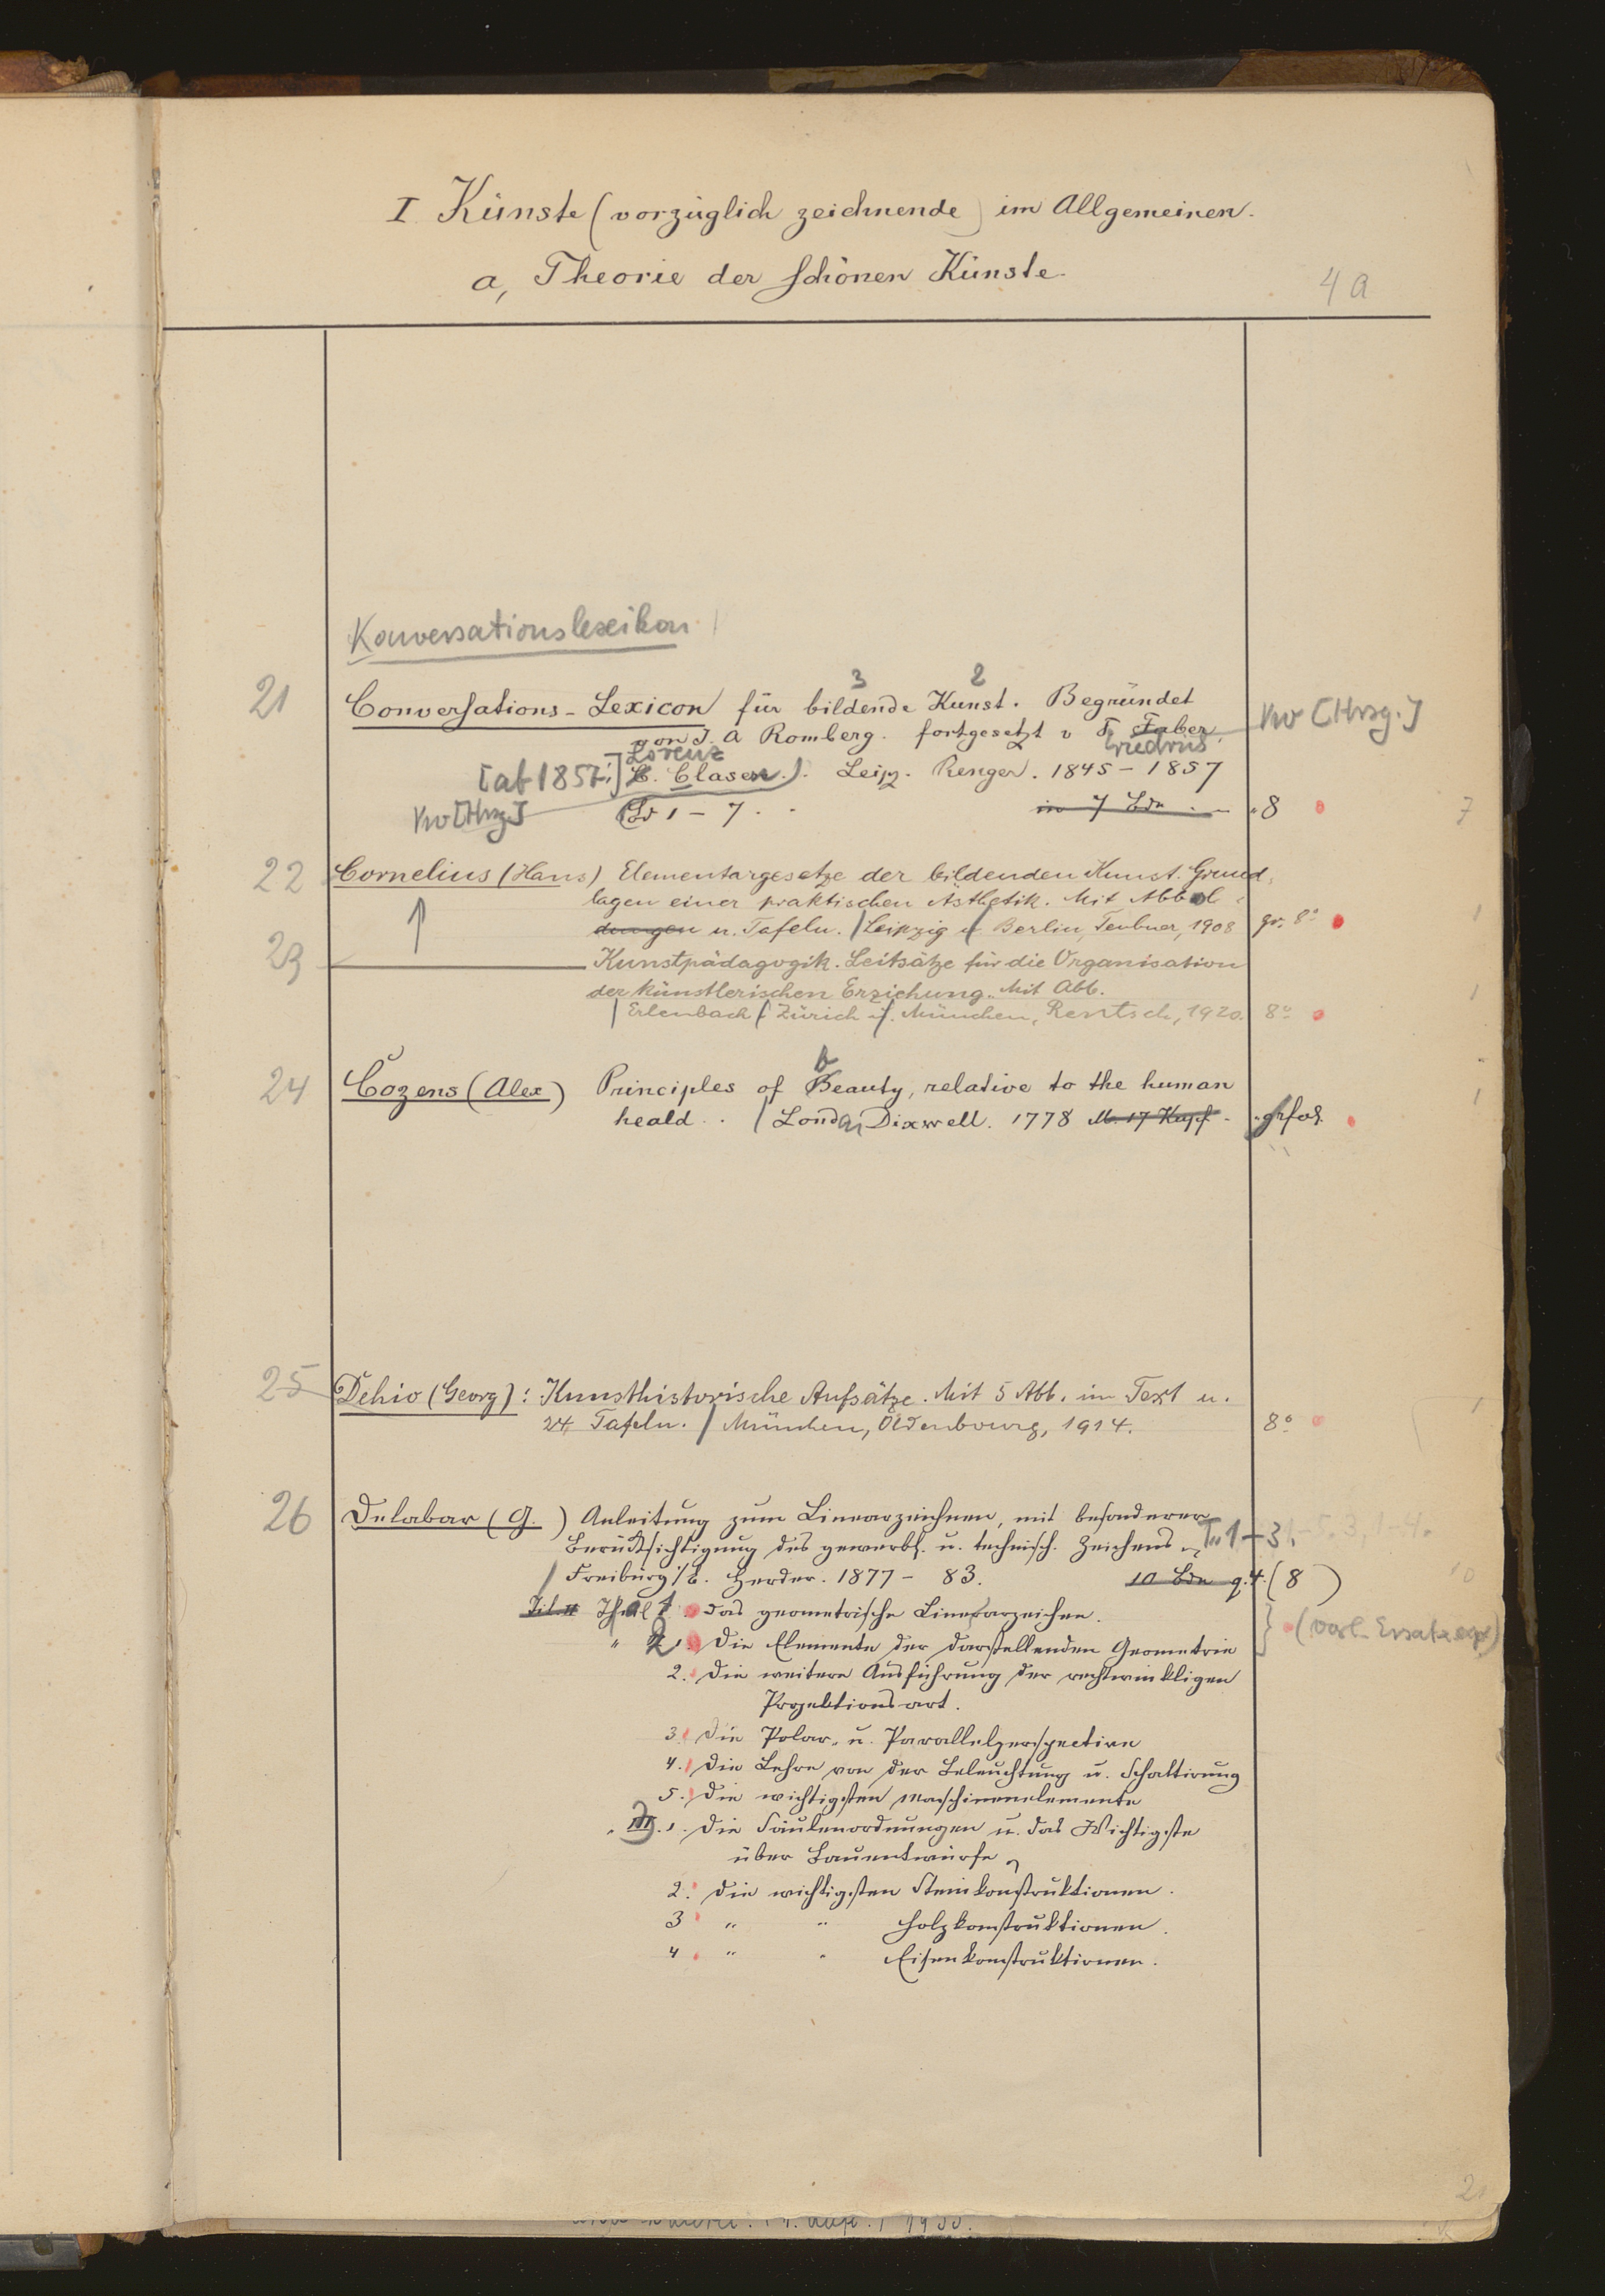 I Künste (vorzüglich zeichnende) im Allgemeinen.
a, Theorie der schönen Künste.
4a
Konversationslexikon
3 2
21 Conversations-Lexicon für bildende Kunst. Begründet
von J. A Romberg. fortgesetzt v F. Faber, VW [Hrsg.]
Lorenz Friedrich
[ab 1857:] L. Clasen.). Leipz. Renger. 1845-1857
VW [Hrsg.] Bd 1-7. in 7 Bdn. 8 7
22 Cornelius (Hans) Elementargesetze der bildenden Kunst. Grund-
lagen einer praktischen Ästhetik. Mit Abbil-
dungen u. Tafeln. / Leipzig u. Berlin, Teubner, 1908 gr. 8° 1
23 Kunstpädagogik. Leitsätze für die Organisation
der künstlerischen Erziehung. Mit Abb.
/ Erlenbach / Zürich u. München, Rentsch, 1920. 8° 1
24 Cozens (Alex) Principles of Beauty, relative to the human 1
heald.. / London, Dixwell. 1778 M. 17 Kupf. grfol.
25 Dehio (Georg): Kunsthistorische Aufsätze. Mit 5 Abb. im Text u. 1
24 Tafeln. / München, Oldenbourg, 1914. 8°
26 Delabar (G.) Anleitung zum Linearzeichnen, mit besonderer
Berücksichtigung des gewerbl. u. technisch. Zeichens T. 1-3.
/ Freiburg i/B. Herder. 1877-83. 10 Bde q. 4. (8) 10
Theil 1. das geometrische Linearzeichen.
" 2 1. Die Elemente der darstellenden Geometrie } (vorl. Ersatzexpl)
2. Die weitere Ausführung der rechtwinkligen
Projektionsart.
3. Die Polar- u. Parallelperspective
4. Die Lehre von der Beleuchtung u. Schattirung
5. Die wichtigsten Maschinenelemente
" III. 1. Die Säulenordnungen u. das Wichtigste
über Bauentwürfe
2. Die wichtigsten Steinkonstruktionen.
3 " " Holzkonstruktionen.
4 " " Eisenkonstruktionen.
2